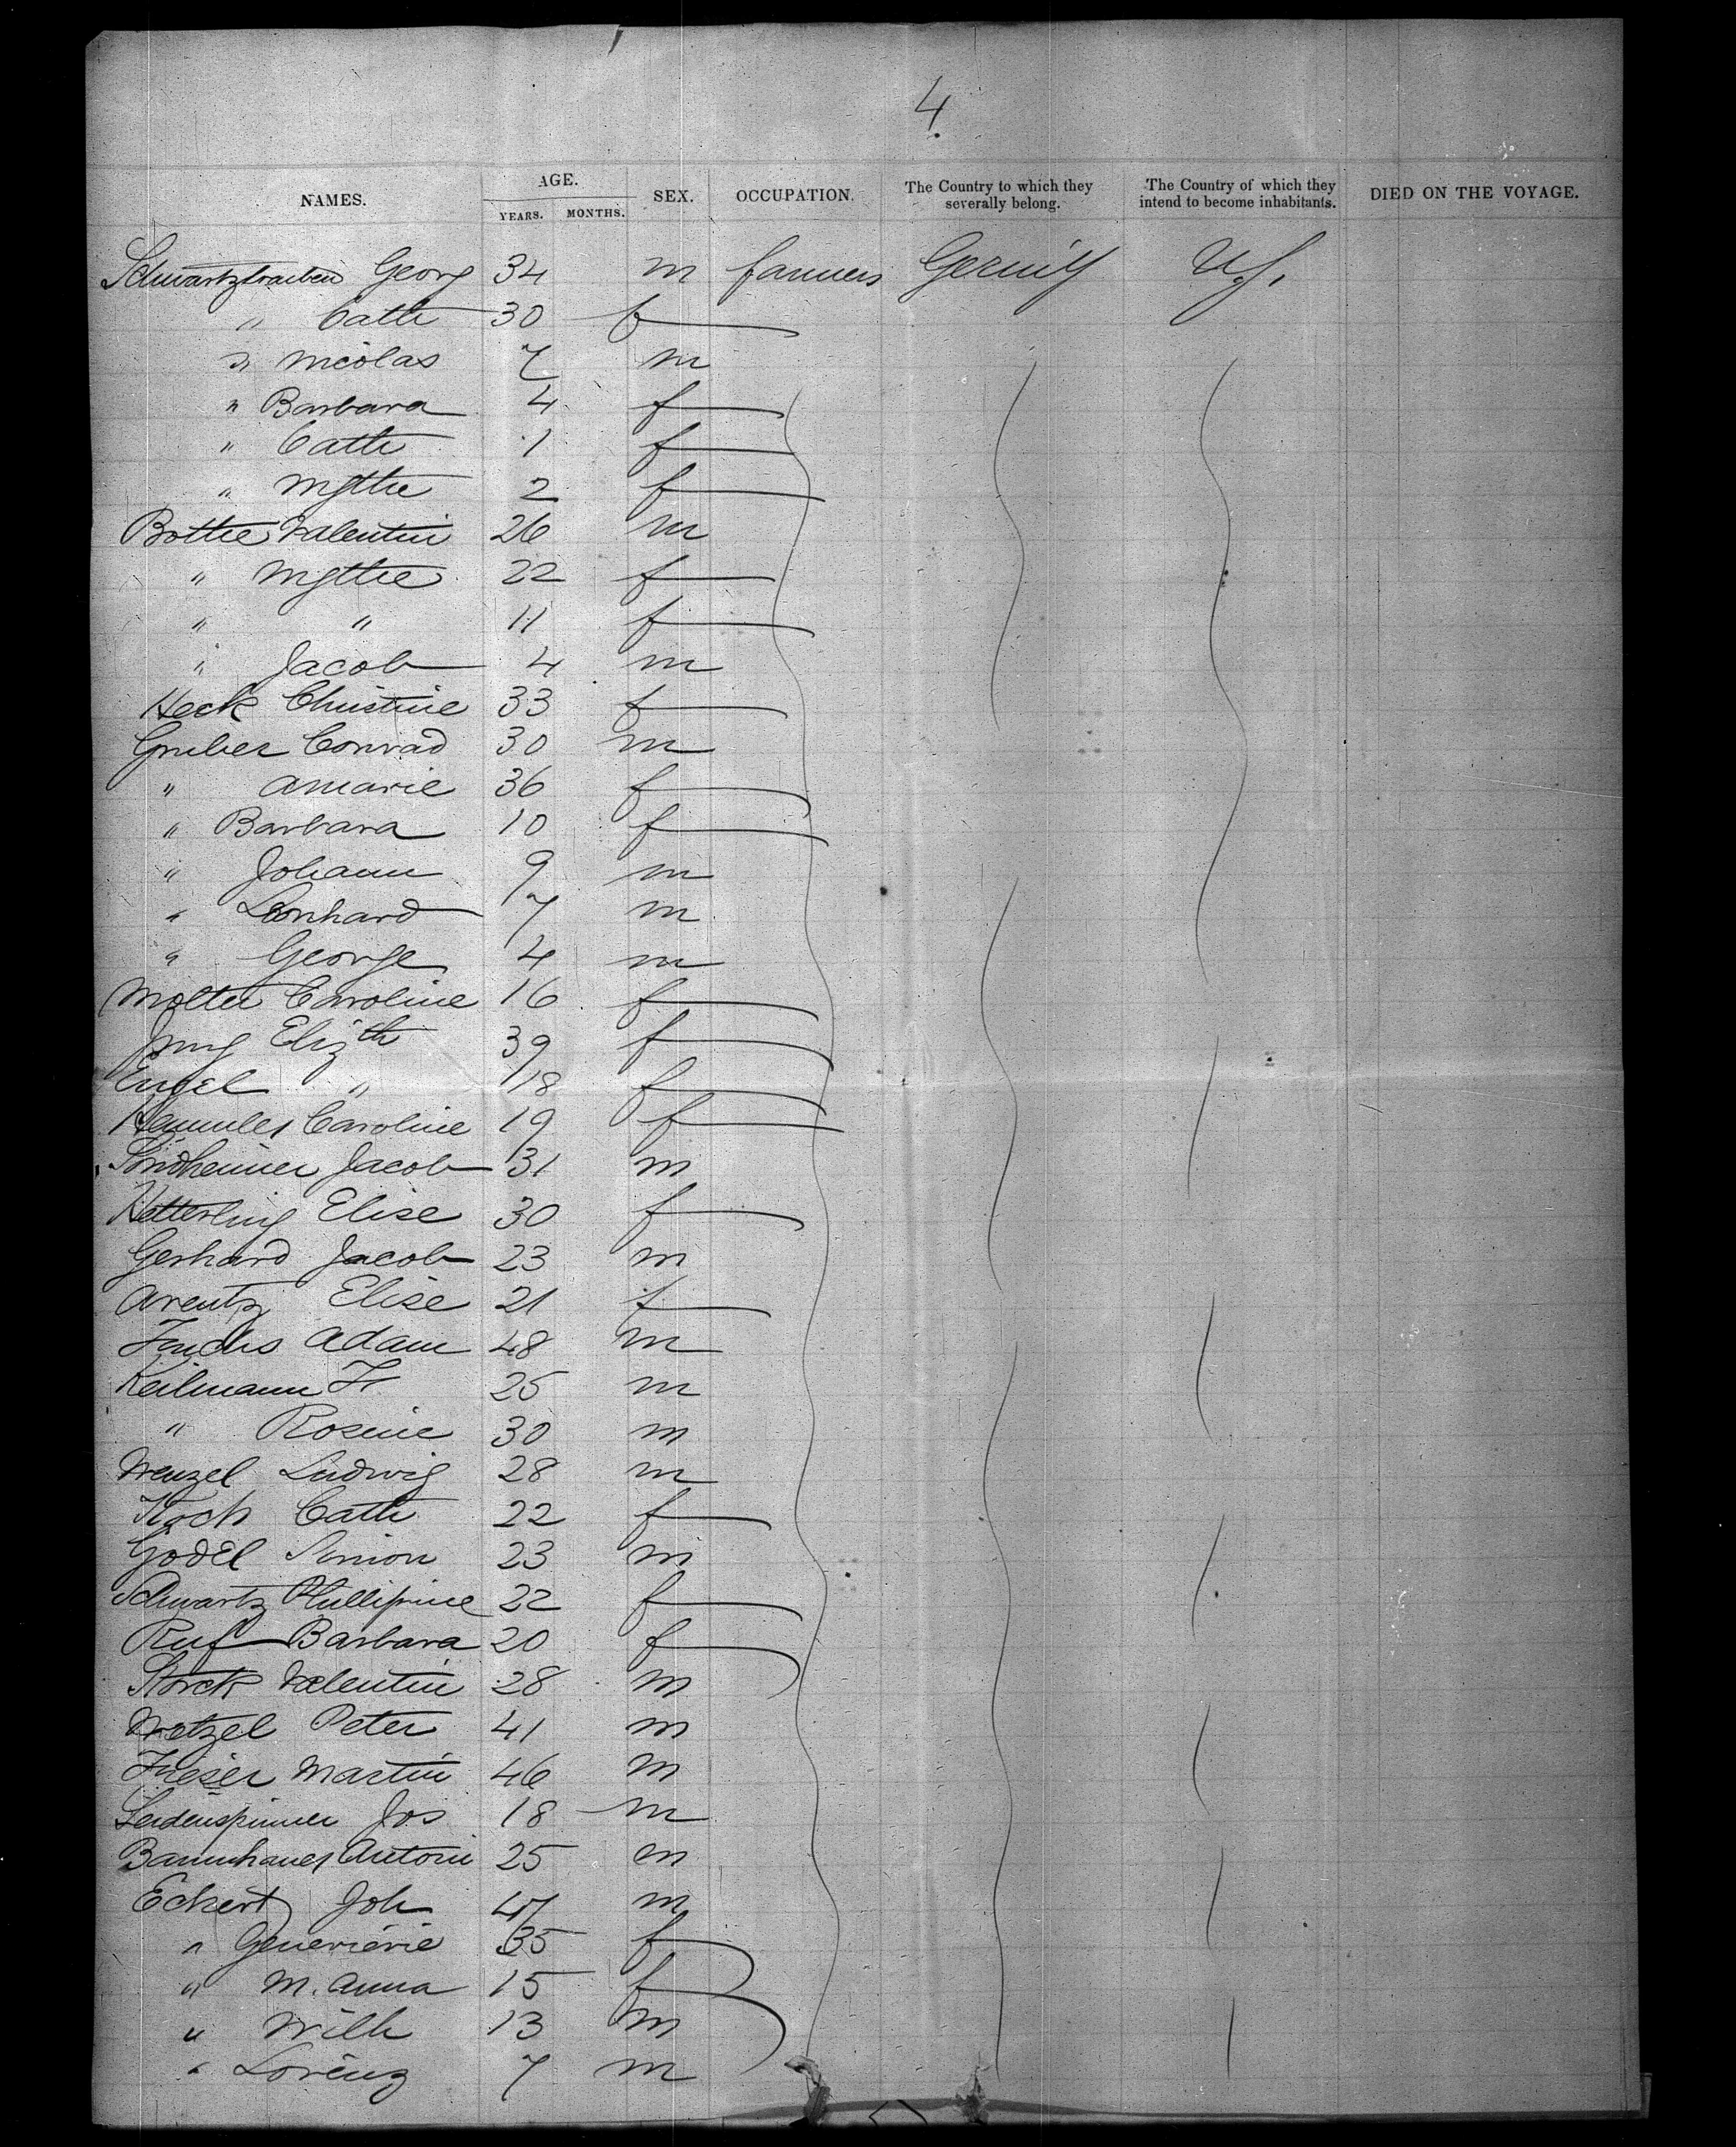 4.
NAMES. AGE. YEARS. MONTHS. SEX. OCCUPATION. The Country to which they severally belong. The Country of which they intend to become inhabitants. DIED ON THE VOYAGE.
Schwartztrauben Georg 34 m farmers Germ'y U.S.
" Cath 30 f
" Nicolas 7 m
" Barbara 4 f
" Cath 1 f
" Mgthe 2 f
Bothe Valentin 26 m
" Mgthe 22 f
" " 11 f
" Jacob 4 m
Heck Christine 33 f
Gruber Conrad 30 m
" Amarie 36 f
" Barbara 10 f
" Johann 9 m
" Leonhard 7 m
" George 4 m
Molter Caroline 16 f
Jung Elizth 39 f
Engel " 18 f
Caroline 19 f
Sondheimer Jacob 31 m
Ketterling Elise 30 f
Gerhard Jacob 23 m
Arentz Elise 21 f
Fuchs Adam 48 m
Keilmann Fr 25 m
" Rosine 30 m
Wenzel Ludwig 28 m
Koch Cath 22 f
Godel Simon 23 m
Schwartz Phillipine 22 f
Ruf Barbara 20 f
Storck Valentin 28 m
Wetzel Peter 41 m
Frieser Martin 46 m
Leidenspinner Jos 18 m
Baumhauer Anton 25 m
Eckert Joh 47 m
" Genevieve 35 f
" M. Anna 15 f
" Wilh 13 m
" Lorenz 7 m